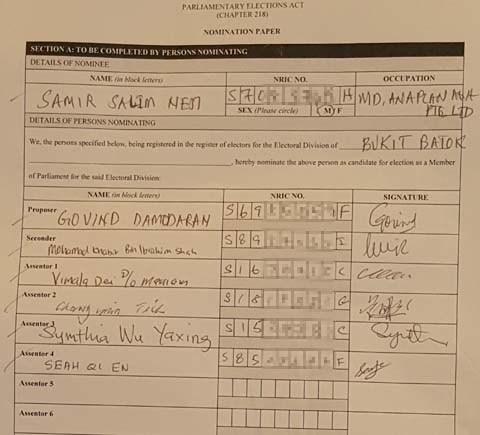 PARLIAMENTARY ELECTIONS ACT
(CHAPTER 218)
NOMINATION PAPER
SECTION A: TO BE COMPLETED BY PERSONS NOMINATING
DETAILS OF NOMINEE
NAME (in block letters) NRIC NO. OCCUPATION
SAMIR SALIM NEJI S70 H MD, ANAPLAN ASIA
SEX (Please circle) (M) F PTE LTD
DETAILS OF PERSONS NOMINATING
We, the persons specified below, being registered in the register of electors for the Electoral Division of BUKIT BATOK
, hereby nominate the above person as candidate for election as a Member
of Parliament for the said Electoral Division:
NAME (in block letters) NRIC NO. SIGNATURE
Proposer GOVIND DAMODARAN S69 F
Seconder Mohamed Bin Ibrahim S89 I
Assentor 1 Vimala Dei D/o S16 C
Assentor 2 S18 C
Assentor 3 Symthia Wu Yaxing S15 C
Assentor 4 SEAH QI EN S85 F
Assentor 5
Assentor 6